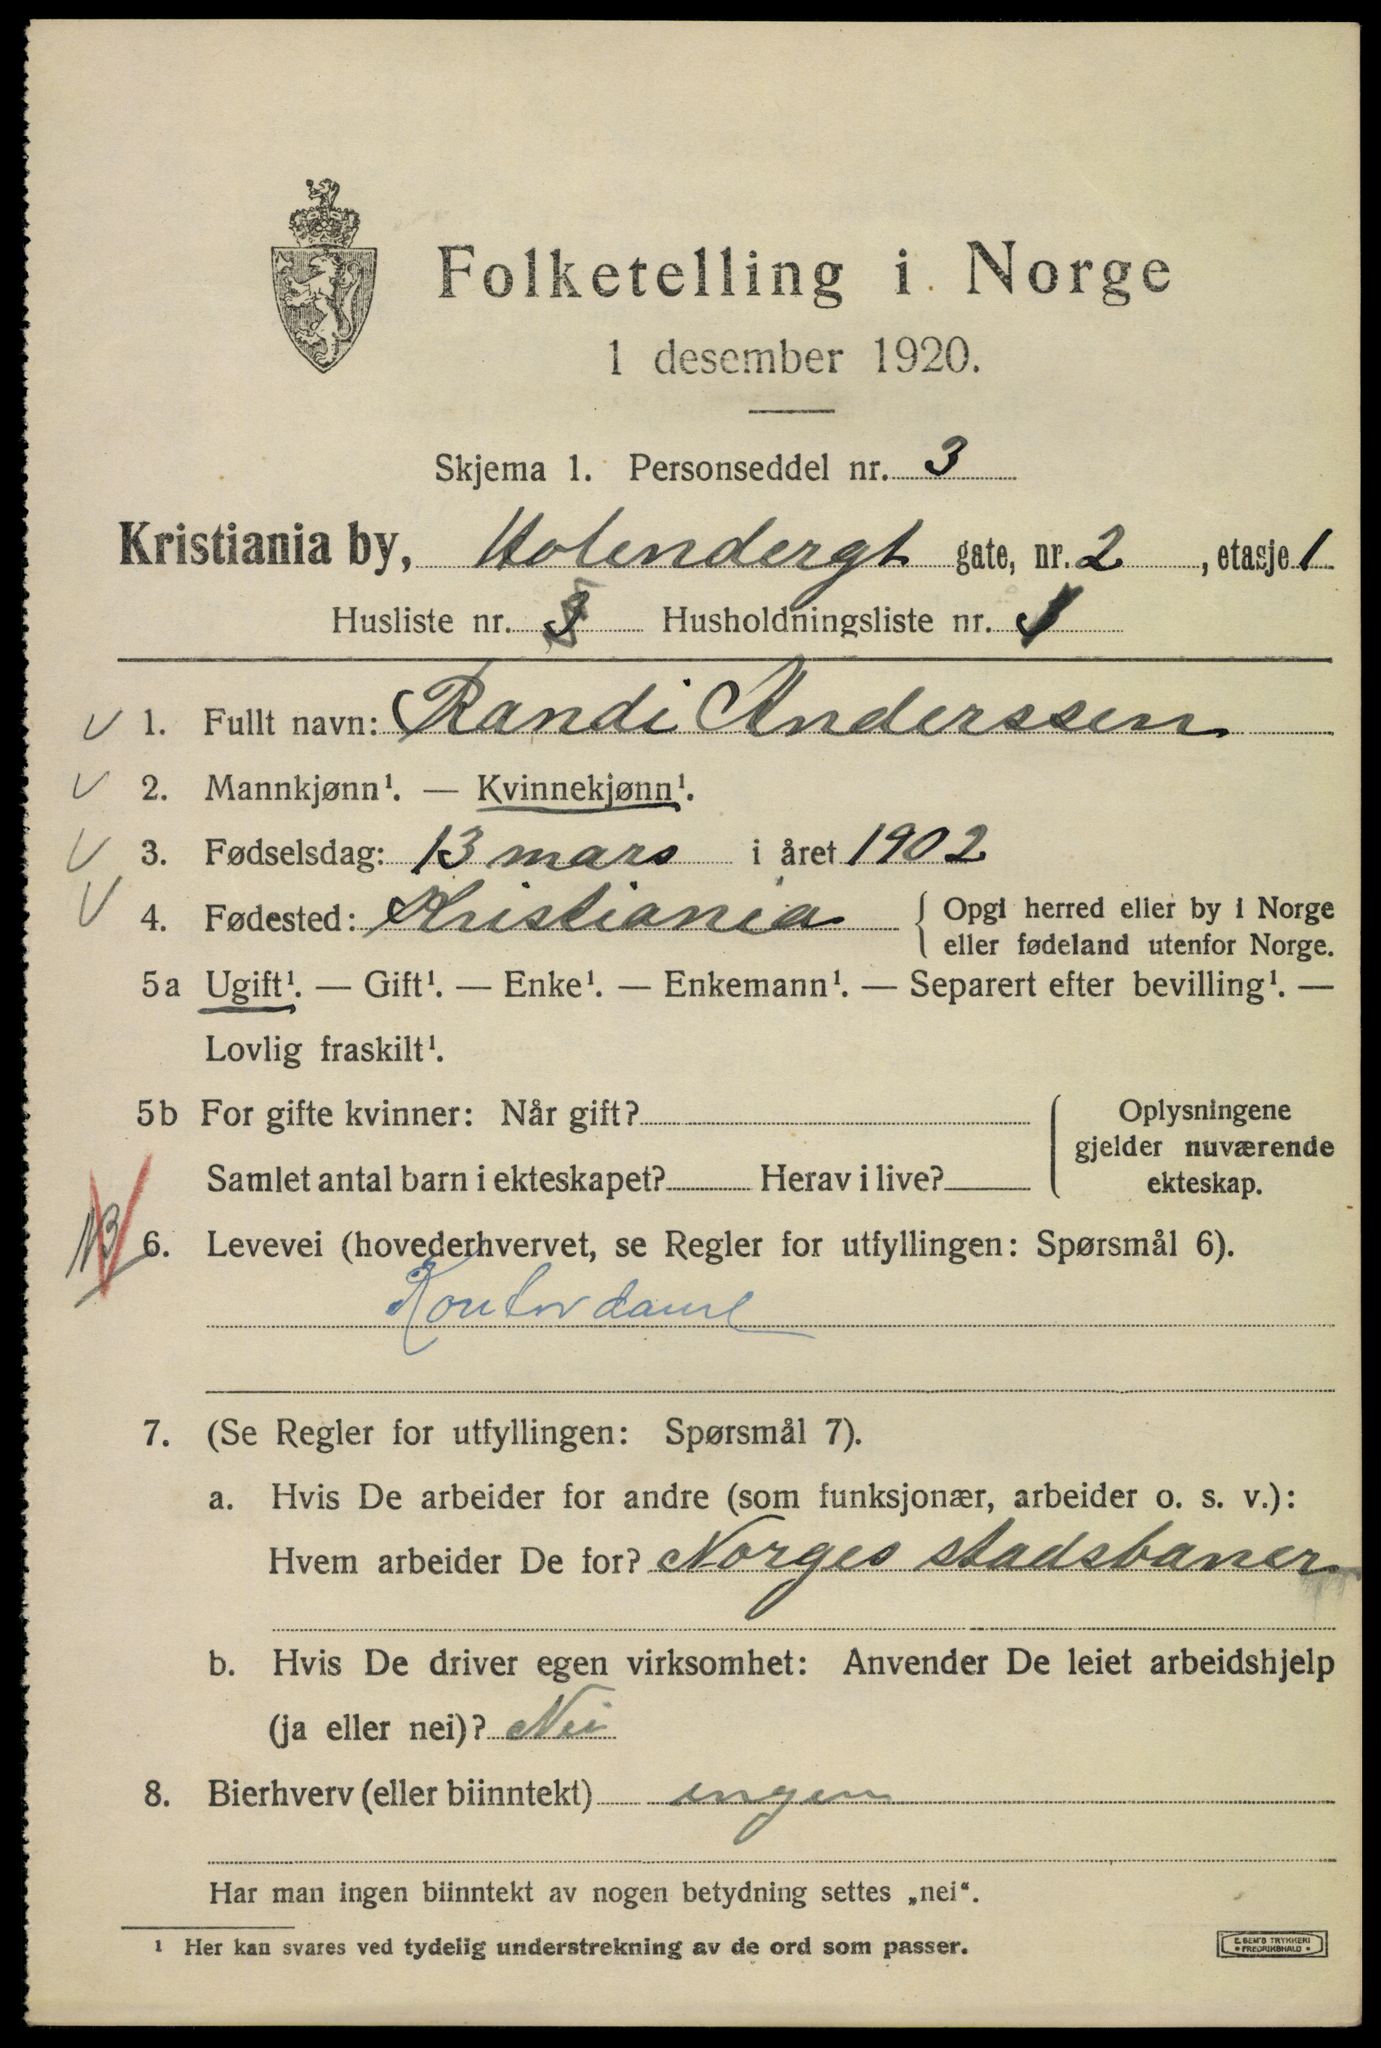 Folketelling i Norge
1 desember 1920.
Skjema 1. Personseddel nr. 3
Kristiania by, Holendergt gate, nr. 2, etasje 1
Husliste nr. Husholdningsliste nr.
1. Fullt navn: Randi Anderssen
2. Mannkjønn¹. — Kvinnekjønn¹.
3. Fødselsdag: 13 mars i året 1902
4. Fødested: Kristiania { Opgi herred eller by i Norge
eller fødeland utenfor Norge.
5a Ugift¹. — Gift¹. — Enke¹. — Enkemann¹. — Separert efter bevilling¹. —
Lovlig fraskilt¹.
5b For gifte kvinner: Når gift?
Samlet antal barn i ekteskapet? Herav i live?
Oplysningene
gjelder nuværende
ekteskap.
6. Levevei (hovederhvervet, se Regler for utfyllingen: Spørsmål 6).
Kontordame
7. (Se Regler for utfyllingen: Spørsmål 7).
a. Hvis De arbeider for andre (som funksjonær, arbeider o. s. v.):
Hvem arbeider De for? Norges stadsbaner
b. Hvis De driver egen virksomhet: Anvender De leiet arbeidshjelp
(ja eller nei)? Nei
8. Bierhverv (eller biinntekt) ingen
Har man ingen biinntekt av nogen betydning settes „nei“.
¹ Her kan svares ved tydelig understrekning av de ord som passer.
E. SEM'S TRYKKERI
• FREDRIKSHALD •